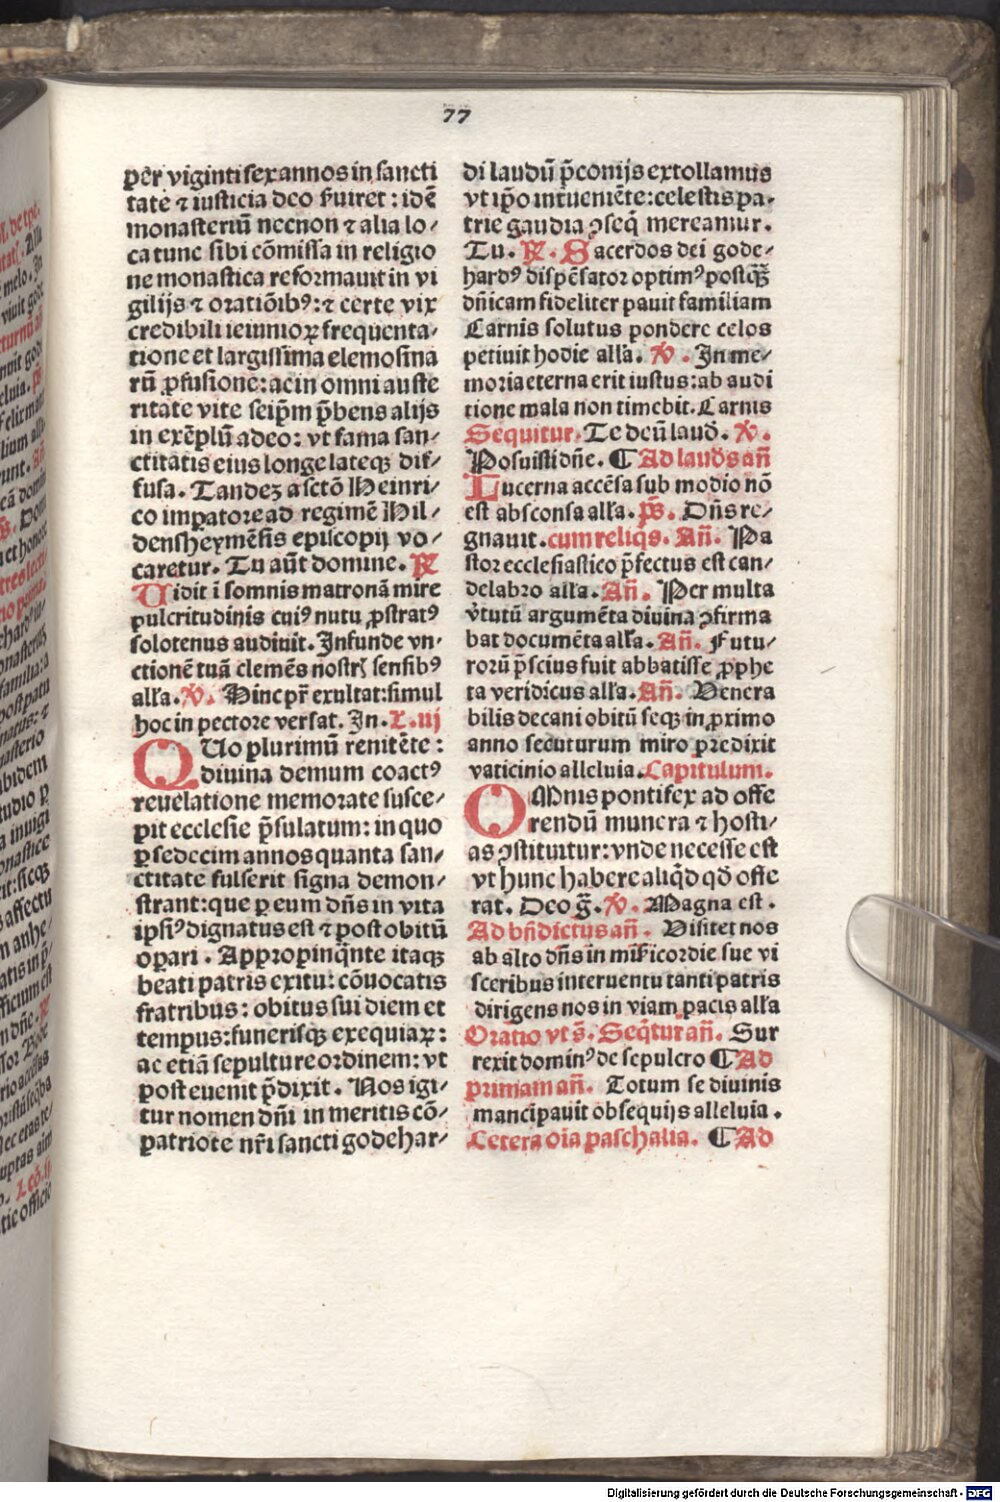 77
per viginti sex annos in sancti
tate ⁊ iusticia deo seruiret : idē
monasteriū necnon ⁊ alia lo⸗
ca tunc sibi cōmissa in religio
ne monastica reformauit in vi
gilijs ⁊ oratiōibꝰ: ⁊ certe vix
credibili ieiunioꝝ frequenta⸗
tione et largissima elemosina
rū ꝓfusione: ac in omni auste
ritate vite seip̄m p̄bens alijs
in exēplū adeo: vt fama san⸗
ctitatis eius longe lateqꝫ dif⸗
fusa. Tandeꝫ a sctō Heinri⸗
co imꝑatore ad regimē Hil⸗
densheymēsis episcopij vo⸗
caretur. Tu aūt domine. ℟
Uidit ī somnis matronā mire
pulcritudinis cuiꝰ nutu ꝓstratꝰ
solotenus audiuit. Infunde vn⸗
ctionē tuā clemēs nostrꝭ sensibꝰ
alla. ℣. Hinc pr̄ exultat: simul
hoc in pectore versat. In. L. iij
QUo plurimū renitēte :
diuina demum coactꝰ
reuelatione memorate susce⸗
pit ecclesie p̄sulatum: in quo
ꝑ sedecim annos quanta san⸗
ctitate fulserit signa demon⸗
strant: que ꝑ eum dn̄s in vita
ipsiꝰ dignatus est ⁊ post obitū
oꝑari . Appropinq̄nte itaqꝫ
beati patris exitu: cōuocatis
fratribus: obitus sui diem et
tempus: funerisqꝫ exequiaꝝ:
ac etiā sepulture ordinem: vt
post euenit p̄dixit . Nos igi⸗
tur nomen dn̄i in meritis cō⸗
patriote nr̄i sancti godehar⸗
di laudū p̄conijs extollamus
vt ip̄o interueniēte: celestis pa⸗
trie gaudia ꝯseq̄ mereamur.
Tu. ℟. Sacerdos dei gode⸗
hardꝰ dispēsator optimꝰ postq̄ꝫ
dn̄icam fideliter pauit familiam
Carnis solutus pondere celos
petiuit hodie alla. ℣. In me⸗
moria eterna erit iustus: ab audi
tione mala non timebit. Carnis
Sequitur. Te deū laud̄. ℣.
Posuisti dn̄e. ¶ Ad laud̄s an̄
Lucerna accēsa sub modio nō
est absconsa alla. ps̄. Dn̄s re⸗
gnauit. cum reliqs. An̄. Pa
stor ecclesiastico p̄fectus est can⸗
delabro alla. An̄. Per multa
v̄tutū argumēta diuina ꝯfirma
bat documēta alla. An̄. Futu⸗
rorū p̄scius fuit abbatisse ꝓphe
ta veridicus alla. An̄. Venera
bilis decani obitū seqꝫ in ꝓximo
anno secuturum miro predixit
vaticinio alleluia. Capitulum.
OMnis pontifex ad offe
rendū munera ⁊ hosti⸗
as ꝯstituitur: vnde necesse est
vt hunc habere aliq̄d qd̄ offe
rat. Deo gr̄. ℣. Magna est .
Ad bn̄dictus an̄ . Visitet nos
ab alto dn̄s in mīsericordie sue vi
sceribus interuentu tanti patris
dirigens nos in viam pacis alla
Oratio vt s̄. Seq̄tur an̄. Sur
rexit dominꝰ de sepulcro ¶ Ad
primam an̄. Totum se diuinis
mancipauit obsequijs alleluia .
Cetera oīa paschalia. ¶ Ad
Digitalisierung gefördert durch die Deutsche Forschungsgemeinschaft - DFG